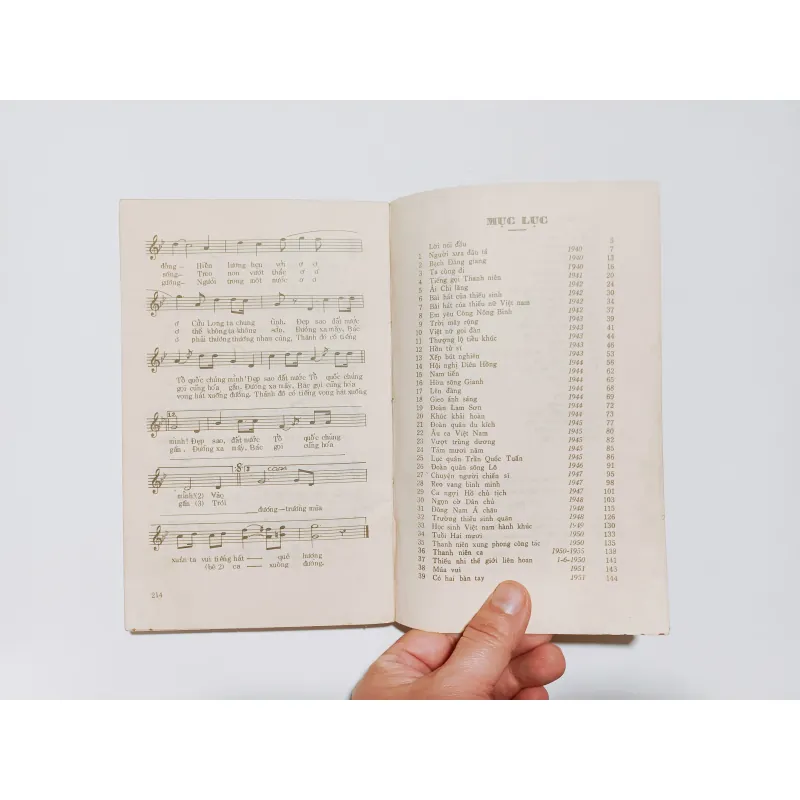 đồng - Hiền lương hẹn với ơ ơ
sông- Trèo non vượt thác ơ ơ
giương- Người trong một nước ơ ơ
ơ Cửu Long ta chung tình, Đẹp sao đất nước
ơ thế không ta không sờn, Đường xa mấy, Bác
ơ phải thương thương nhau cùng, Thành đô có tiếng
Tổ quốc chúng mình! Đẹp sao đất nước Tổ quốc chúng
gọi cũng hóa gần, Đường xa mấy, Bác gọi cũng hóa
vọng hát xuống đường. Thành đô có tiếng vọng hát xuống
mình! Đẹp sao, đất nước Tổ quốc chúng
gần. Đường xa mấy. Bác gọi cũng hóa
mình!(2) Vào
gần (3) Trời
đường-trường mùa
xuân ta vui tiếng hát quê hương
(bè 2) ca xuống đường.
214
MỤC LỤC
Lời nói đầu 5
1 Người xưa đâu tá 1940 7
2 Bạch Đằng giang 1940 13
3 Ta cùng đi 1940 16
4 Tiếng gọi Thanh niên 1941 20
5 Ải Chi lăng 1942 24
6 Bài hát của thiếu sinh 1942 30
7 Bài hát của thiếu nữ Việt Nam 1942 34
8 Em yêu Công Nông Binh 1942 37
9 Trời mây rộng 1943 39
10 Việt nữ gọi đàn 1943 41
11 Thượng lộ tiểu khúc 1943 44
12 Hồn tử sĩ 1943 46
13 Xếp bút nghiên 1943 53
14 Hội nghị Diên Hồng 1944 56
15 Nam tiến 1944 64
16 Hờn sông Gianh 1944 66
17 Lên đàng 1944 68
18 Gieo ánh sáng 1944 69
19 Đoàn Lam Sơn 1944 72
20 Khúc khải hoàn 1944 73
21 Đoàn quân du kích 1945 77
22 Âu ca Việt Nam 1945 80
23 Vượt trùng dương 1945 82
24 Tám mươi năm 1945 85
25 Lục quân Trần Quốc Tuấn 1945 86
26 Đoàn quân sông Lô 1946 91
27 Chuyện người chiến sĩ 1947 95
28 Reo vang bình minh 1947 98
29 Ca ngợi Hồ chủ tịch 1947 101
30 Ngọn cờ Dân chủ 1948 103
31 Đông Nam Á châu 1948 115
32 Trường thiếu sinh quân 1948 126
33 Học sinh Việt nam hành khúc 1949 130
34 Tuổi Hai mươi 1950 133
35 Thanh niên xung phong công tác 1950 135
36 Thanh niên ca 1950-1955 138
37 Thiếu nhi thế giới liên hoan 1-6-1950 141
38 Múa vui 1951 143
39 Có hai bàn tay 1951 144